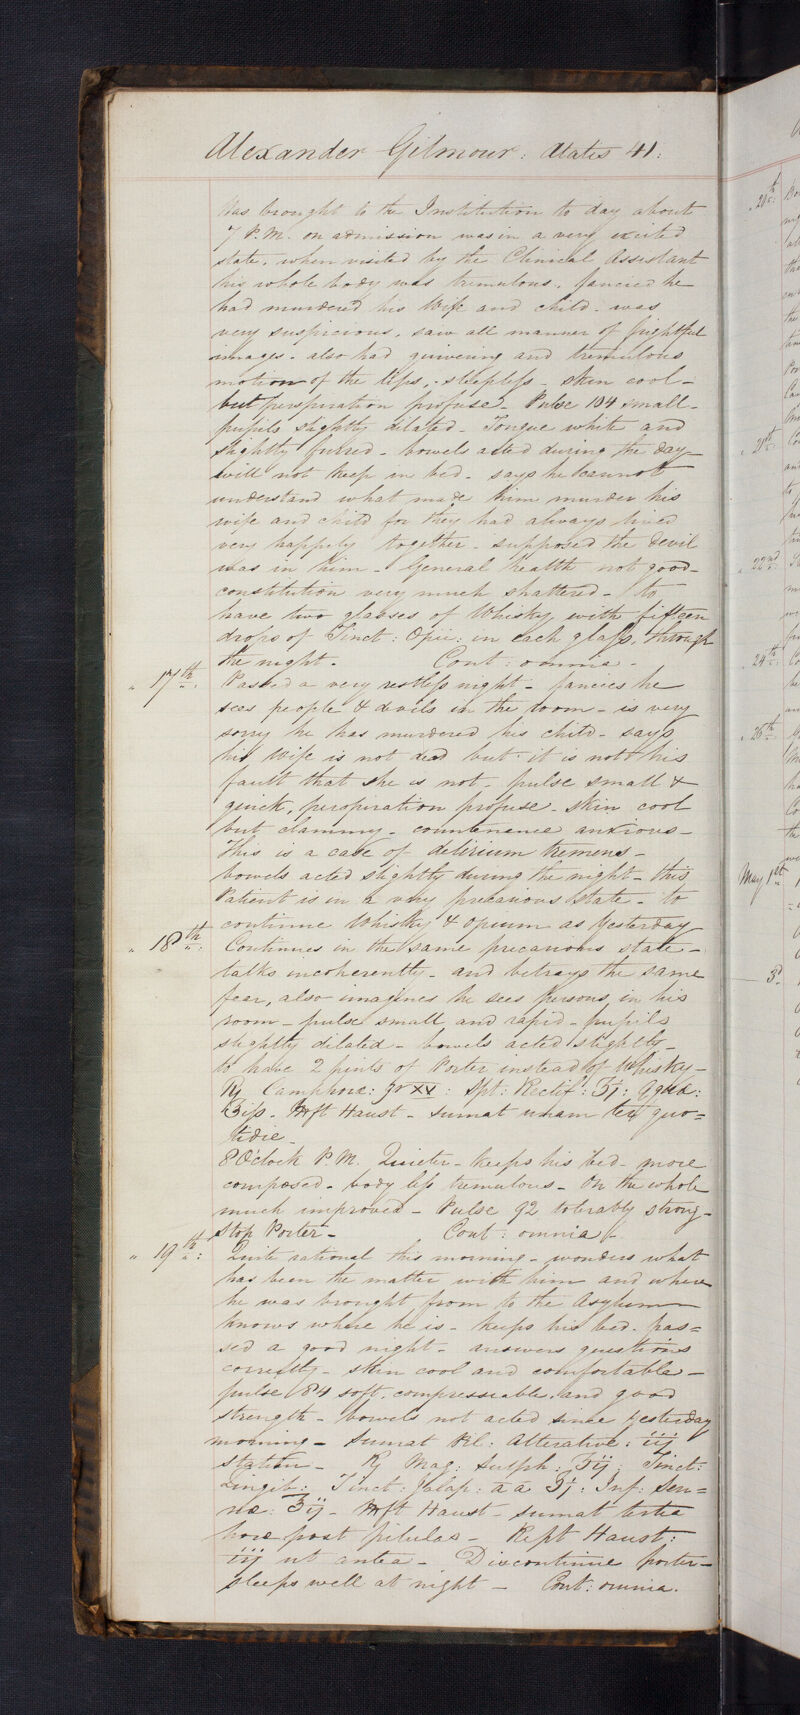 Alexander Gilmour: Ætatis 41:
Was brought to the Institution to day about
7 P.M. on admission was in a very excited
state, when visited by the Clinical Assistant
his whole body was tremulous, fancied he
had murdered his Wife and child. was
very suspicious, saw all manner of frightful
images. also had quivering and tremulous
motion of the lips, sleepless – skin cool –
but perspiration profuse – Pulse 104 small –
pupils slightly dilated – Tongue white and
slightly furred – bowels acted during the day –
will not keep in bed – says he cannot
understand what made him murder his
wife and child for they had always lived
very happily together – supposed the Devil
was in him – General health not good –
constitution very much shattered – to
have two glasses of Whisky with fifteen
drops of Tinct: Opii: in each glass, through
the night – Cont: omnia –
" 17th: Passed a very restless night – fancies he
sees people & devils in the room – is very
sorry he has murdered his child – says
his wife is not dead but it is not his
fault that she is not – pulse small &
quick, perspiration profuse – skin cool
but clammy – countenance anxious –
This is a case of delirium tremens –
bowels acted slightly during the night – this
Patient is in a very precarious state – to
continue Whisky & Opium as Yesterday
" 18th: Continues in the same precarious state –
talks incoherently – and betrays the same
fear, also imagines he sees persons in his
room – pulse small and rapid – pupils
slightly dilated – bowels acted slightly –
to have 2 pints of Porter instead of Whisky –
℞ Camphoræ: gr XV: Spt: Rectif: ʒj: Aquæ:
℥iſs. ft Haust – sumat unam ter quo=
tidie –
8 O'clock P.M. Quieter – keeps his bed – more
composed – body less tremulous – On the whole
much improved – Pulse 92 tolerably strong –
Stop Porter – Cont: omnia –
" 19th: Quite rational this morning – wonders what
has been the matter with him and where
he was brought from to the Asylum –
knows where he is – keeps his bed – pas=
sed a good night – answers questions
correctly – skin cool and comfortable –
pulse 84 soft, compressible, and good
strength – bowels not acted since yesterday
morning – Sumat Pil: Alterative: iij
statim – ℞ Mag: Sulph: ʒij: Tinct:
Zingib: Tinct: Jalap: aa ʒj: Inf: Sen=
næ: ℥ij – ft Haust – sumat tertia
hora post pilulas – Rept Haust:
iij ut antea – Discontinue porter –
sleeps well at night – Cont: omnia.
" 20th:
" 21st:
" 22nd
" 24th:
" 26th
May 1st
3d